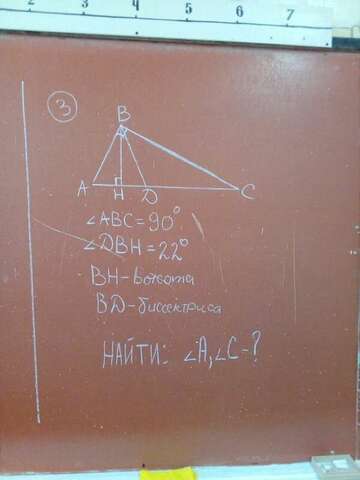 2 3 4 5 6 7
3
B
A H D C
∠ABC=90°
∠DBH=22°
BH-высота
BD-биссектриса
НАЙТИ: ∠A,∠C-?